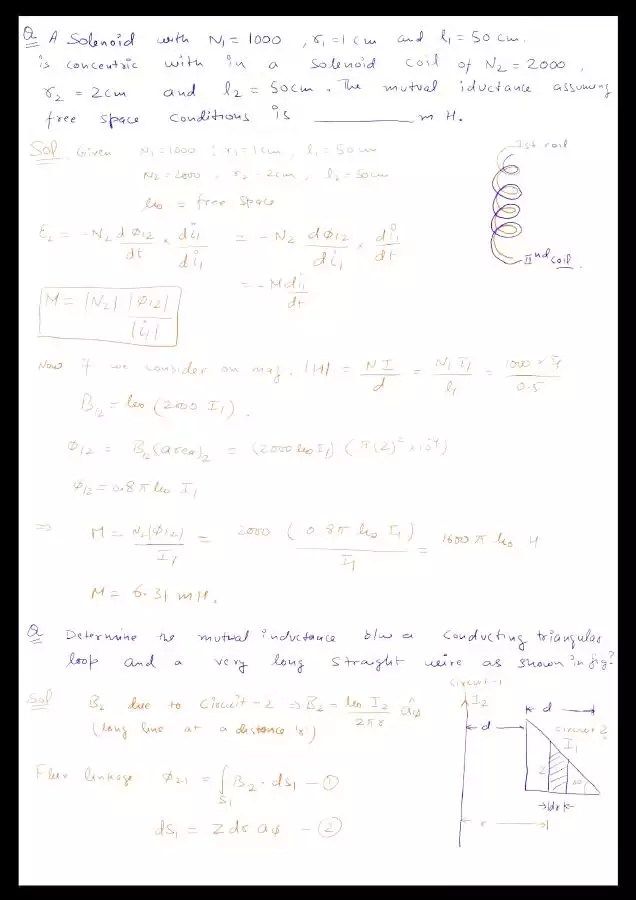 Q A Solenoid with N₁ = 1000 , r₁ = 1 cm and l₁ = 50 cm.
is concentric with in a solenoid coil of N₂ = 2000 ,
r₂ = 2cm and l₂ = 50cm . The mutual iductance assuming
free space conditions is ________ m H.
Sol. Given N₁ = 1000 ; r₁ = 1cm , l₁ = 50 cm
N₂ = 2000 , r₂ = 2cm , l₂ = 50cm
μ₀ = free space
Ist coil
IInd coil.
ε₂ = -N₂ dφ₁₂/dt × di₁/di₁ = -N₂ dφ₁₂/di₁ × di₁/dt
= -M di₁/dt
M = |N₂| |φ₁₂|/|i₁|
Now if we consider on mag. |H| = NI/d = N₁I₁/l₁ = 1000 × I₁/0.5
B₁₂ = μ₀ (2000 I₁) .
φ₁₂ = B₁₂(area)₂ = (2000 μ₀ I₁) (π(2)² × 10⁻⁴)
φ₁₂ = 0.8π μ₀ I₁
⇒ M = N₂|φ₁₂|/I₁ = 2000 (0.8π μ₀ I₁)/I₁ = 1600 π μ₀ H
M = 6.31 mH.
Q Determine the mutual inductance b/w a conducting triangular
loop and a very long straight wire as shown in fig?
Sol B₂ due to circuit-2 ⇒ B₂ = μ₀ I₂/2πr âφ
(long line at a distance 'r')
Flux linkage φ₂₁ = ∫S₁ B₂ · ds₁ — ①
ds₁ = Z dr aφ — ②
circuit-1
I₂
d
d
circuit 2
I₁
Z
dr
r